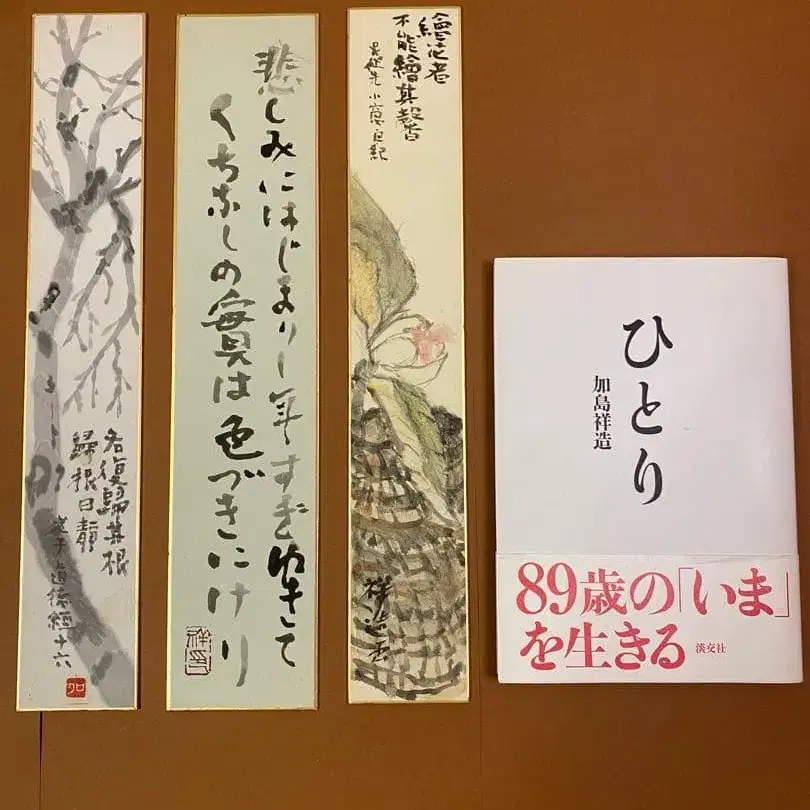 各復歸其根
歸根曰靜
老子道德經十六
加
悲しみにはじまりし年すぎゆきて
くちなしの實は色づきにけり
繪花者
不能繪其馨
呉從先 小窓自紀
ひとり
加島祥造
89歳の「いま」
を生きる
淡交社